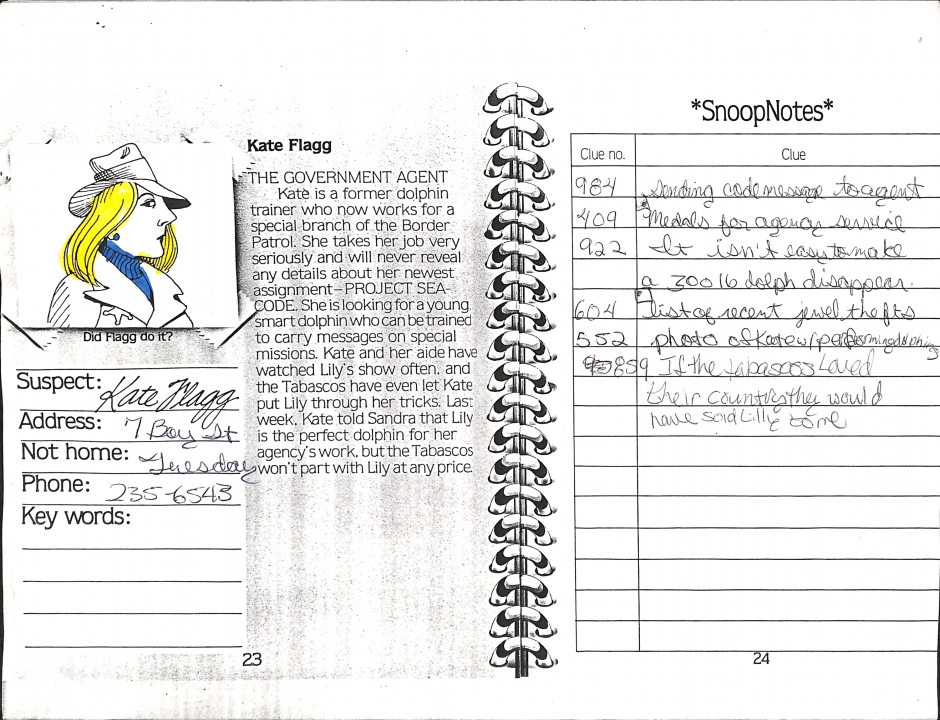 Kate Flagg
THE GOVERNMENT AGENT
Kate is a former dolphin
trainer who now works for a
special branch of the Border
Patrol. She takes her job very
seriously and will never reveal
any details about her newest
assignment—PROJECT SEA-
CODE. She is looking for a young,
smart dolphin who can be trained
to carry messages on special
missions. Kate and her aide have
watched Lily's show often, and
the Tabascos have even let Kate
put Lily through her tricks. Last
week, Kate told Sandra that Lily
is the perfect dolphin for her
agency's work, but the Tabascos
won't part with Lily at any price.
Did Flagg do it?
Suspect: Kate Flagg
Address: 7 Bay St
Not home: Tuesday
Phone: 235-6543
Key words:
23
*SnoopNotes*
Clue no. Clue
984 Sending code message to agent
409 Medals for agency service
922 It isn't easy to make
a 300 lb dolph disappear.
604 List of recent jewel thefts
552 photo of Kate w/performing dolphins
859 If the tabascos loved
their country they would
have sold Lilly to me
24